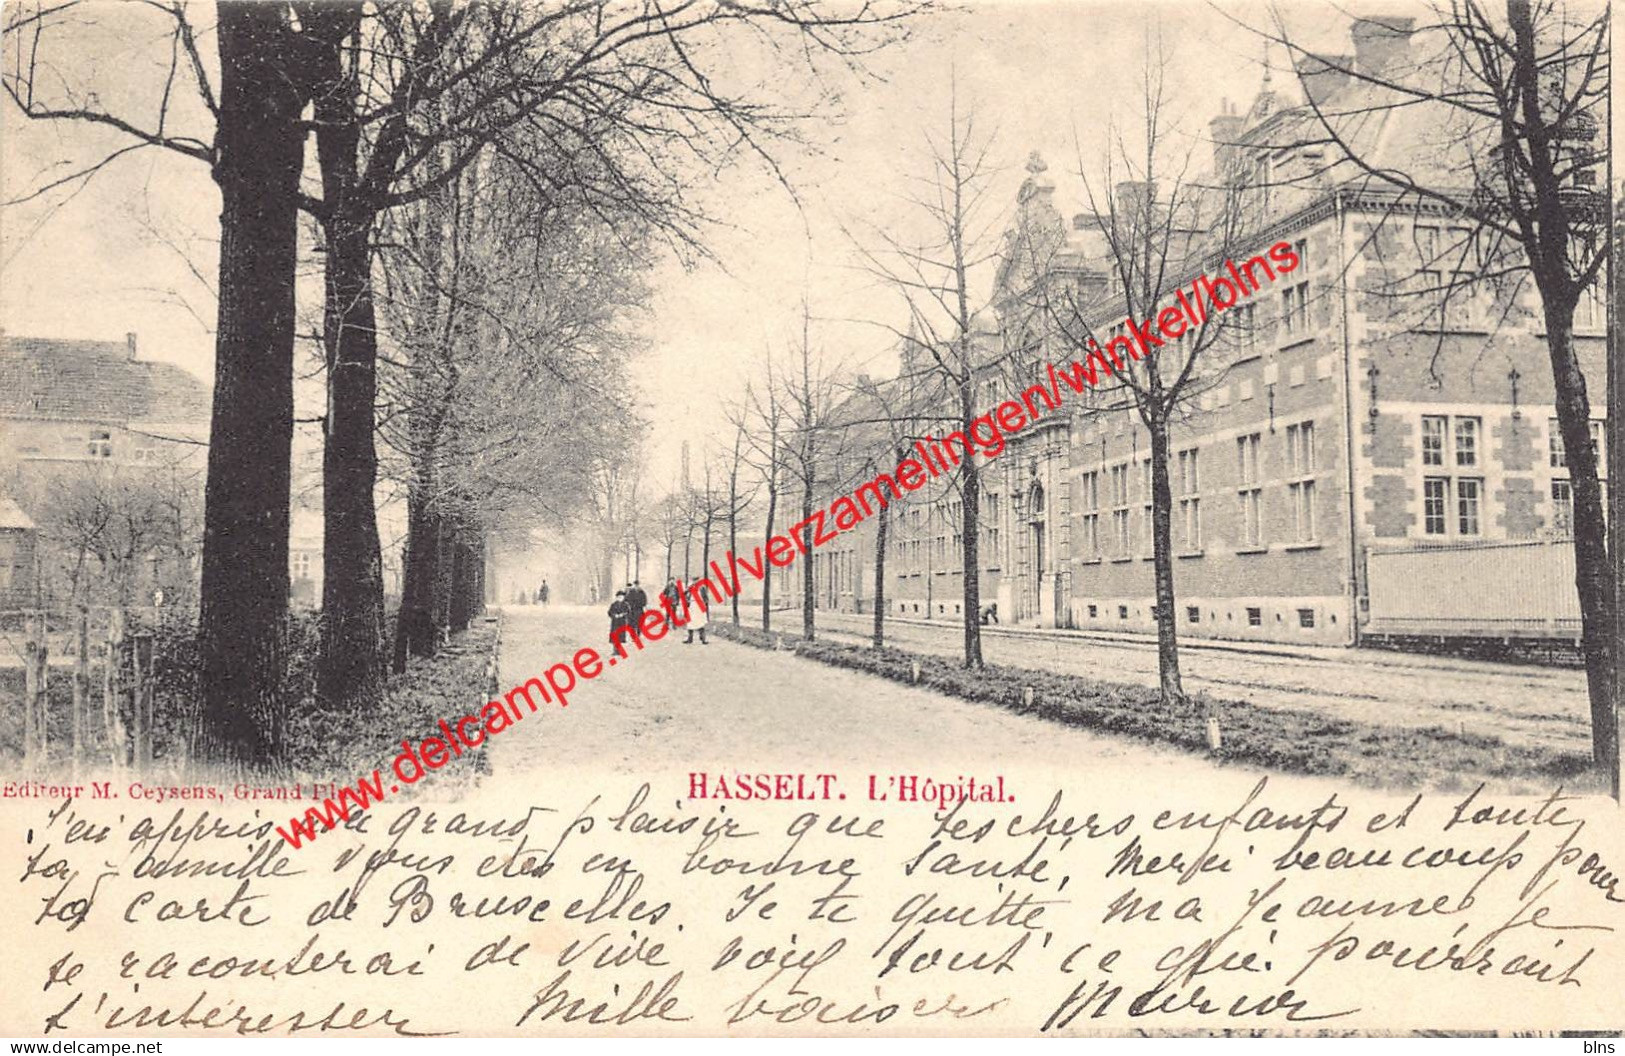 www.delcampe.net/nl/verzamelingen/winkel/blns
Editeur M. Ceysens, Grand
HASSELT. L'Hôpital.
J'ai appris avec grand plaisir que tes chers enfants et toute
ta famille vous êtes en bonne santé. Merci beaucoup pour
ta carte de Bruscelles. Je te quitte, ma Jeanne, je
te raconterai de vive voix tout ce qui pourrait
t'intéresser Mille baisers
Website: www.delcampe.net - Winkel: blns
blns